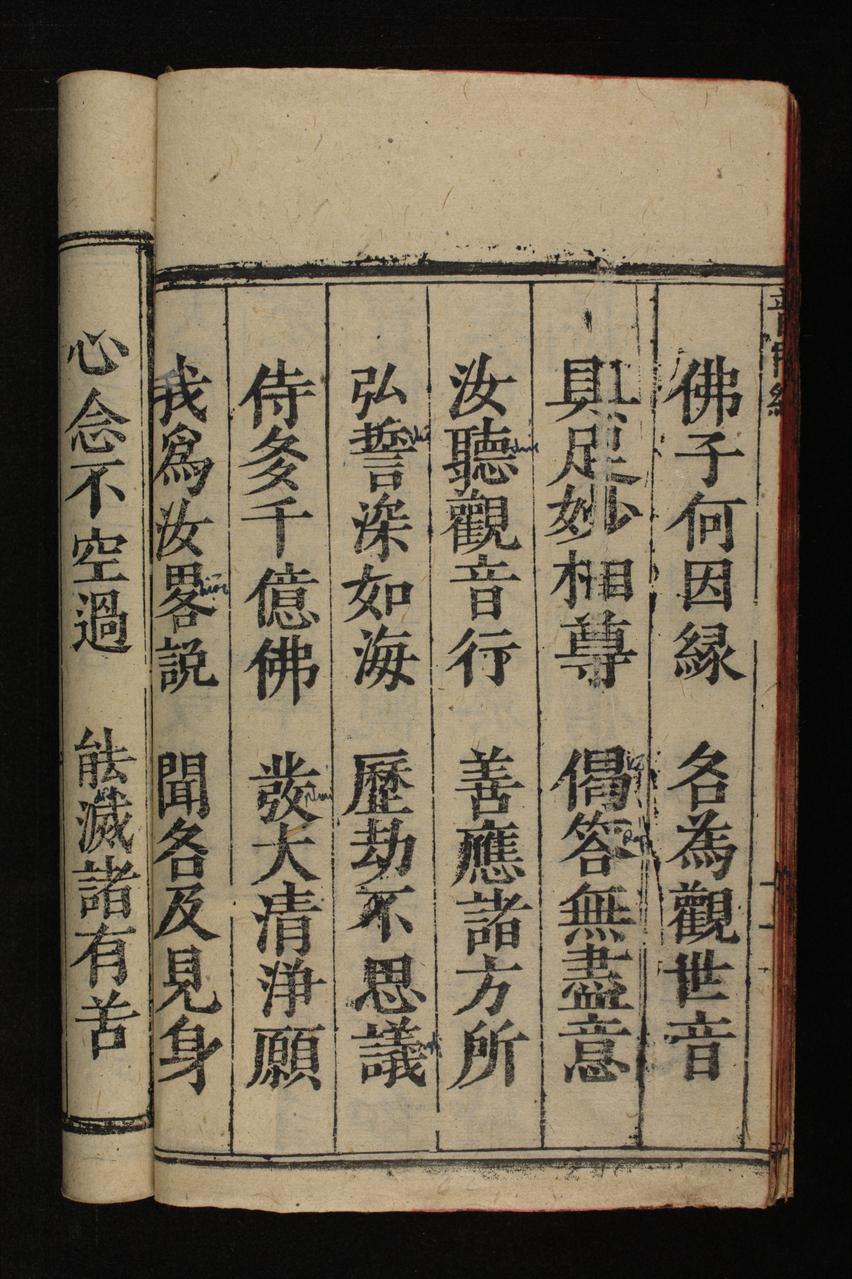 佛子何因緑 各為觀世音
具足妙相尊 偈答無盡意
汝聽觀音行 善應諸方所
弘誓深如海 歷劫不思議
侍多千億佛 發大清淨願
我爲汝畧説 聞各及見身
心念不空過 能滅諸有苦